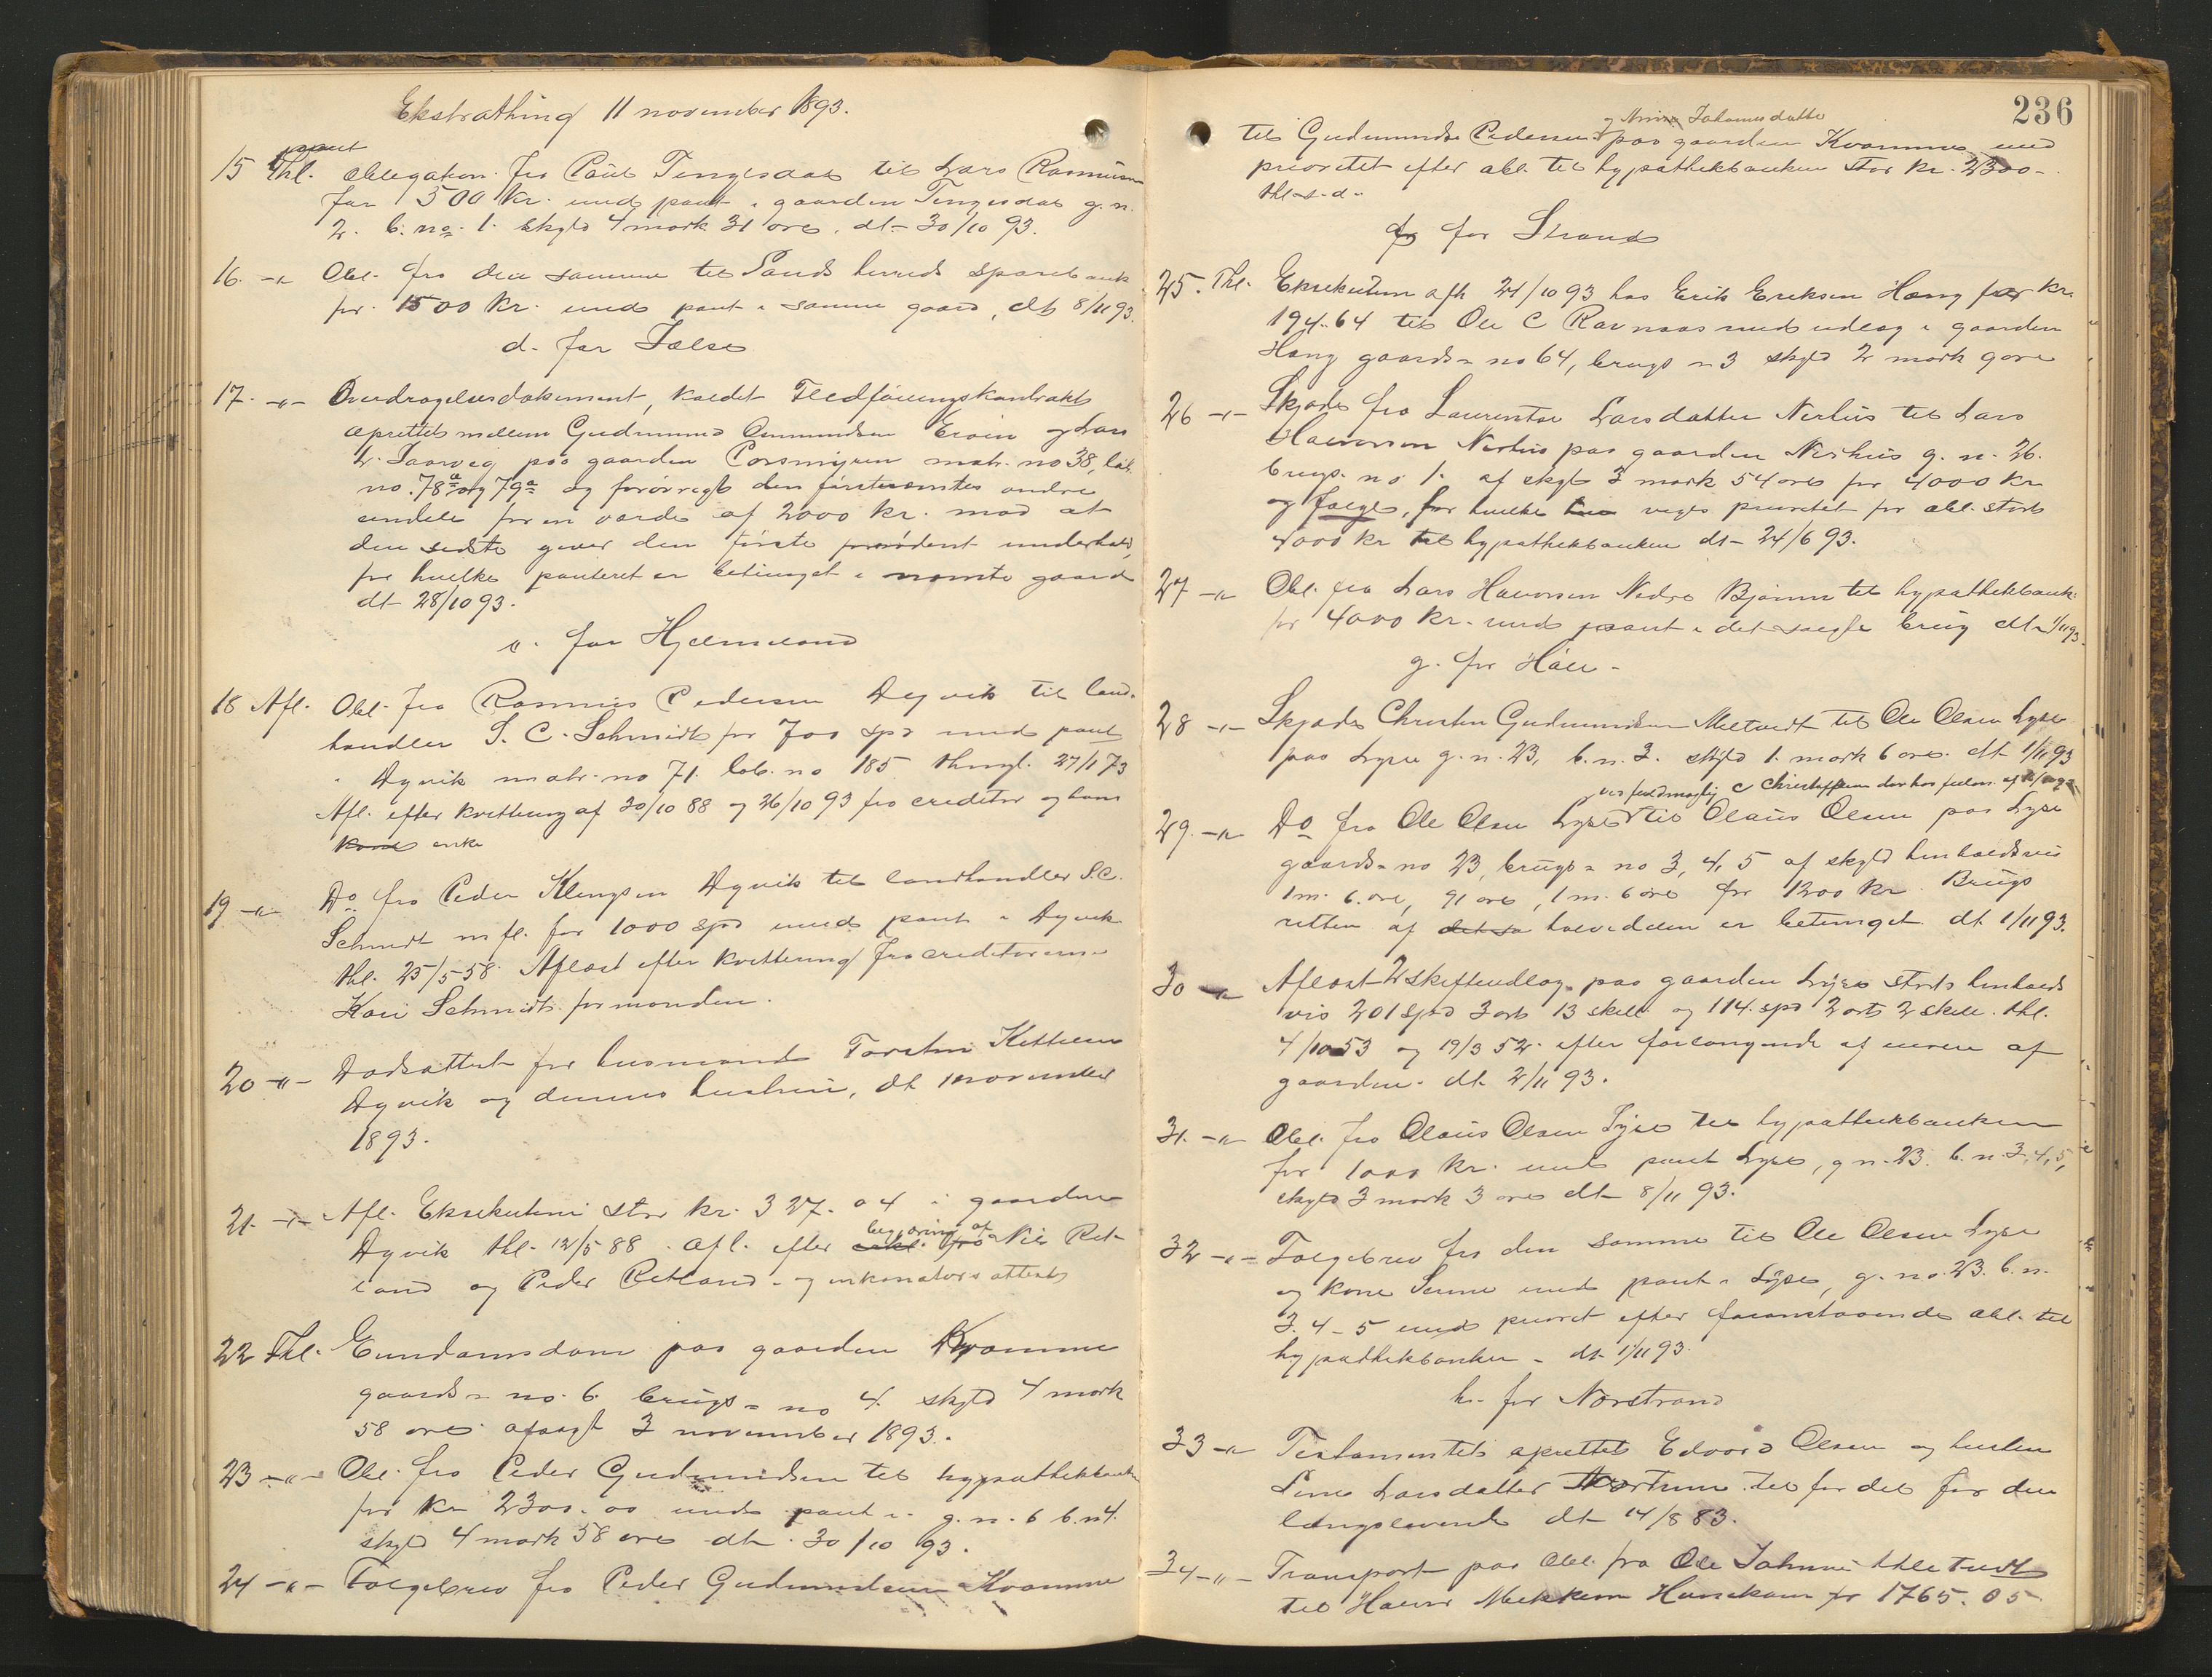 Ekstrathing 11 november 1893.
pant
15 Thl. obligation fra Paul Tengesdal til Lars Rasmussen
for 500 kr. med pant i gaarden Tengesdal g.n.
2. b. no. 1. skyld 4 mark 31 øre. dt. 30/10 93.
16. -"- Obl. fra den samme til Sands herreds sparebank
for 1500 kr. med pant i samme gaard, dt 8/11 93.
d. for Jælse
17. -"- Overdragelsesdokument, kaldet Fledføringskontrakt
oprettet mellem Gudmund Ommundsen Eroin og Lars
L. Saarvig paa gaarden Porsmyren matr. no 38, løb.
no. 78a og 79a og forøvrigt den førstnævntes andre
eiendele for en værdi af 2000 kr. mod at
den sidste giver den første forsvødent underhold,
for hvilke panteret er betinget i nævnte gaard
dt 28/10 93.
e. for Hjelmeland
18 Afl. Obl. fra Rasmus Pedersen Døvik til land-
handler S. C. Schmidt for 700 spd med pant
i Døvik matr. no 71. løb. no 185 thingl. 27/1 73
Afl. efter kvittering af 20/10 88 og 26/10 93 fra creditor og hans
kone enke
19 -"- Do fra Peder Klengsen Døvik til landhandler S.C.
Schmidt m fl. for 1000 spd med pant i Døvik
thl. 25/5 58. Aflæst efter kvittering fra creditorerne
Kari Schmidts formænden.
20 -"- Dødsattest for husmand Torsten Kettelsen
Døvik og dennes hustru, dt 1 november
1893.
21. -"- Afl. Eksekution stor kr. 327. 04 i gaarden
begjæring af
Døvik thl. 12/5 88. afl. efter fra Nils Ret-
land og Peder Retland og inkonators attest
22 Thl. Eiendomsdom paa gaarden Kvamme
gaards-no. 6 brugs-no 4. skyld 4 mark
58 øre afsagt 3 november 1893.
23 -"- Obl. fra Peder Gudmundsen til hypothekbanken
for kr 2300.00 med pant i g.n. 6 b.n 4.
skyld 4 mark 58 øre dt. 30/10 93.
24 -"- Følgebrev fra Peder Gudmundsen Kvamme
236
og Anna Johannesdatter
til Gudmund Pedersen paa gaarden Kvamme med
prioritet efter obl. til hypothekbanken stor kr. 2300.-
thl s.d.
f for Strand
25. Thl. Eksekution afh 24/10 93 hos Erik Eriksen Hæng for kr.
194.64 til Ole C Ravnaas med udlæg i gaarden
Hæng gaards-no 64, brugs-n 3 skyld 2 mark 9 øre
26 -"- Skjøde fra Laurentse Larsdatter Nerhus til Lars
Halvorsen Nerhus paa gaarden Nerhus g. n. 26.
brugs. no 1. af skyld 3 mark 54 øre for 4000 kr
og følge, for hvilke viges prioritet for obl. stor
4000 kr til hypothekbanken dt 24/6 93.
27 -"- Obl. fra Lars Halvorsen Nedre Bjørnn til hypothekbank.
for 4000 kr. med pant i det solgte brug dt 1/11 93.
g. for Håle.
28 -"- Skjøde Christen Gudmundsen Meltvedt til Ole Olsen Lyse
paa Lyse g. n. 23, b. n. 3. skyld 1. mark 6 øre. dt 1/11 93
ved fuldmægtig C Christoffersen
29. -"- Do fra Ole Olsen Lyse til Olaus Olsen paa Lyse
gaards-no 23, brugs-no 3, 4, 5 af skyld henholdsvis
1 m. 6. øre, 91 øre, 1 m. 6 øre for 1200 kr. Brugs
retten af det sa halvedelen er betinget dt 1/11 93.
30 -"- Aflæst 2 skifteudlæg paa gaarden Lyse stort henholds
vis 201 spd 3 ort 13 skill og 114. spd 2 ort 2 skill. thl.
4/10 53 og 19/3 52. efter forlangende af eieren af
gaarden. dt 2/11 93.
31. -"- Obl. fra Olaus Olsen Lyse til hypothekbanken
for 1000 kr. med pant Lyse, g n. 23. b. n. 3, 4, 5,
skyld 3 mark 3 øre dt 8/11 93.
32 -"- Følgebrev fra den samme til Ole Olsen Lyse
og kone Senne med pant i Lyse, g. no. 23. b. n.
3. 4 - 5 med priorit efter foranstaaende obl. til
hypothekbanken - dt 1/11 93.
h. for Nærstrand
33 -"- Testamentet oprettet Edvard Olsen og hustru
Sine Larsdatter til fordel for den
længslevende dt 14/8 83.
34 -"- Transport paa obl. fra Ole Johnsen
til Halvor for 1765.05